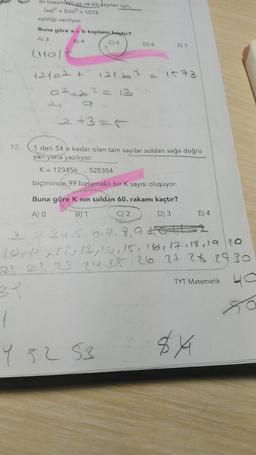 İki basamaklı aa ve bb sayıları için,
(aa)² + (bb)² = 1573
eşitliği veriliyor.
Buna göre a + b toplamı kaçtır?
A) 3 B) 4 C) 5 D) 6 E) 7
121a² + 121b² = 1573
a² + b² = 13
2 + 3 = 5
12. 1 den 54 e kadar olan tam sayılar soldan sağa doğru
yan yana yazılıyor.
K = 123456 ... 525354
biçiminde 99 basamaklı bir K sayısı oluşuyor.
Buna göre K nın soldan 60. rakamı kaçtır?
A) 0 B) 1 C) 2 D) 3 E) 4
15, 16, 17, 18, 19 20
26 27 28 29 30
TYT Matematik
40
50
52 53
54